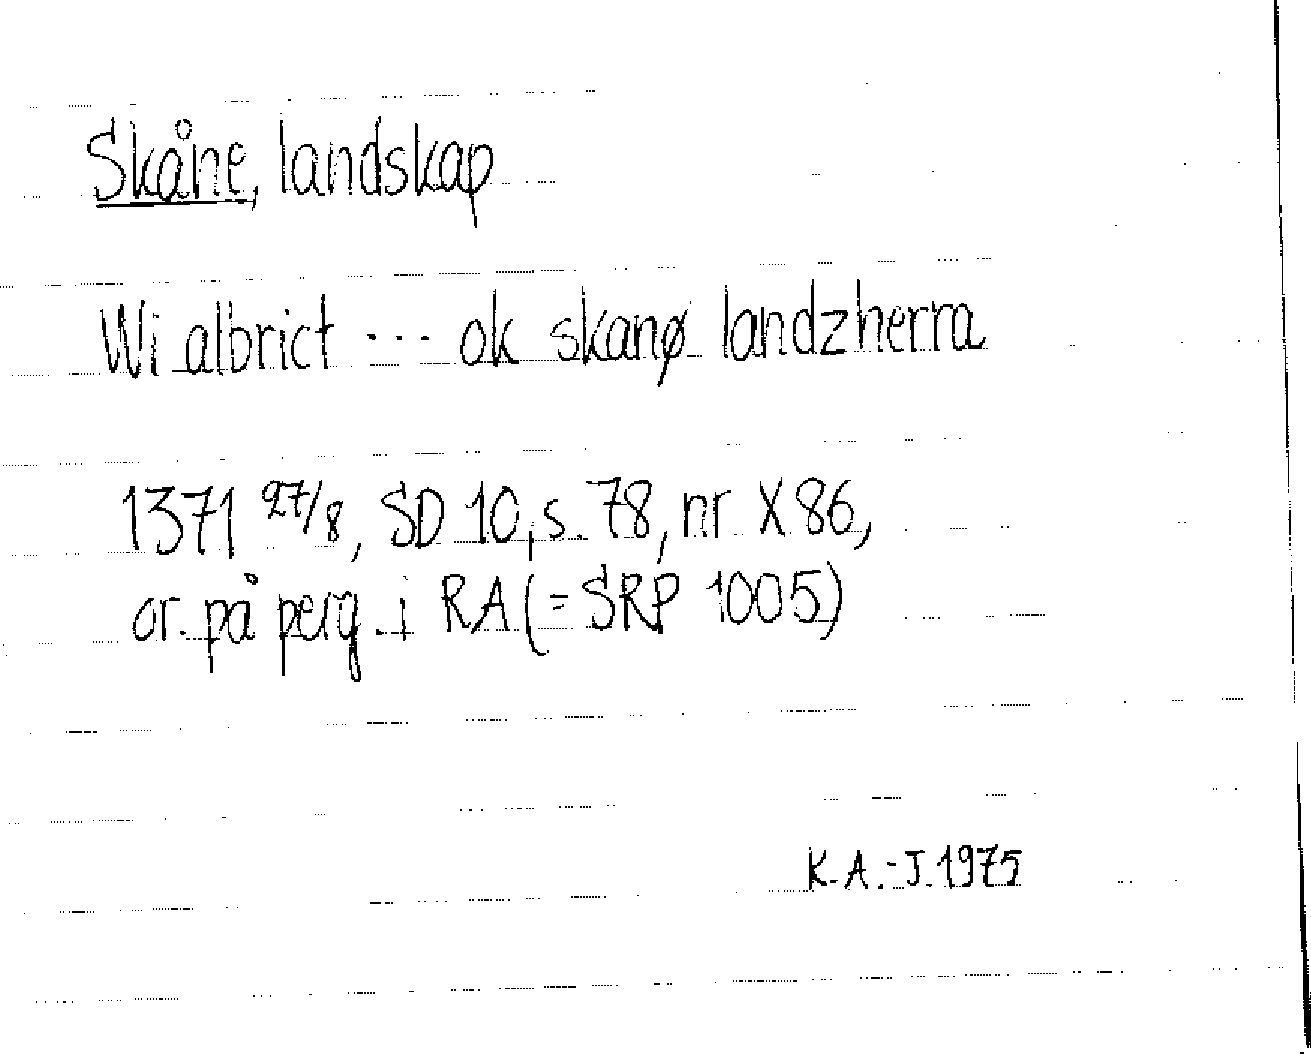 Skåne, landskap
Wi albrict ... ok skanø landzherra
1371 27/8, SD 10, s. 78, nr X 86,
or. på perg. i RA (= SRP 1005)
K.A.-J. 1975